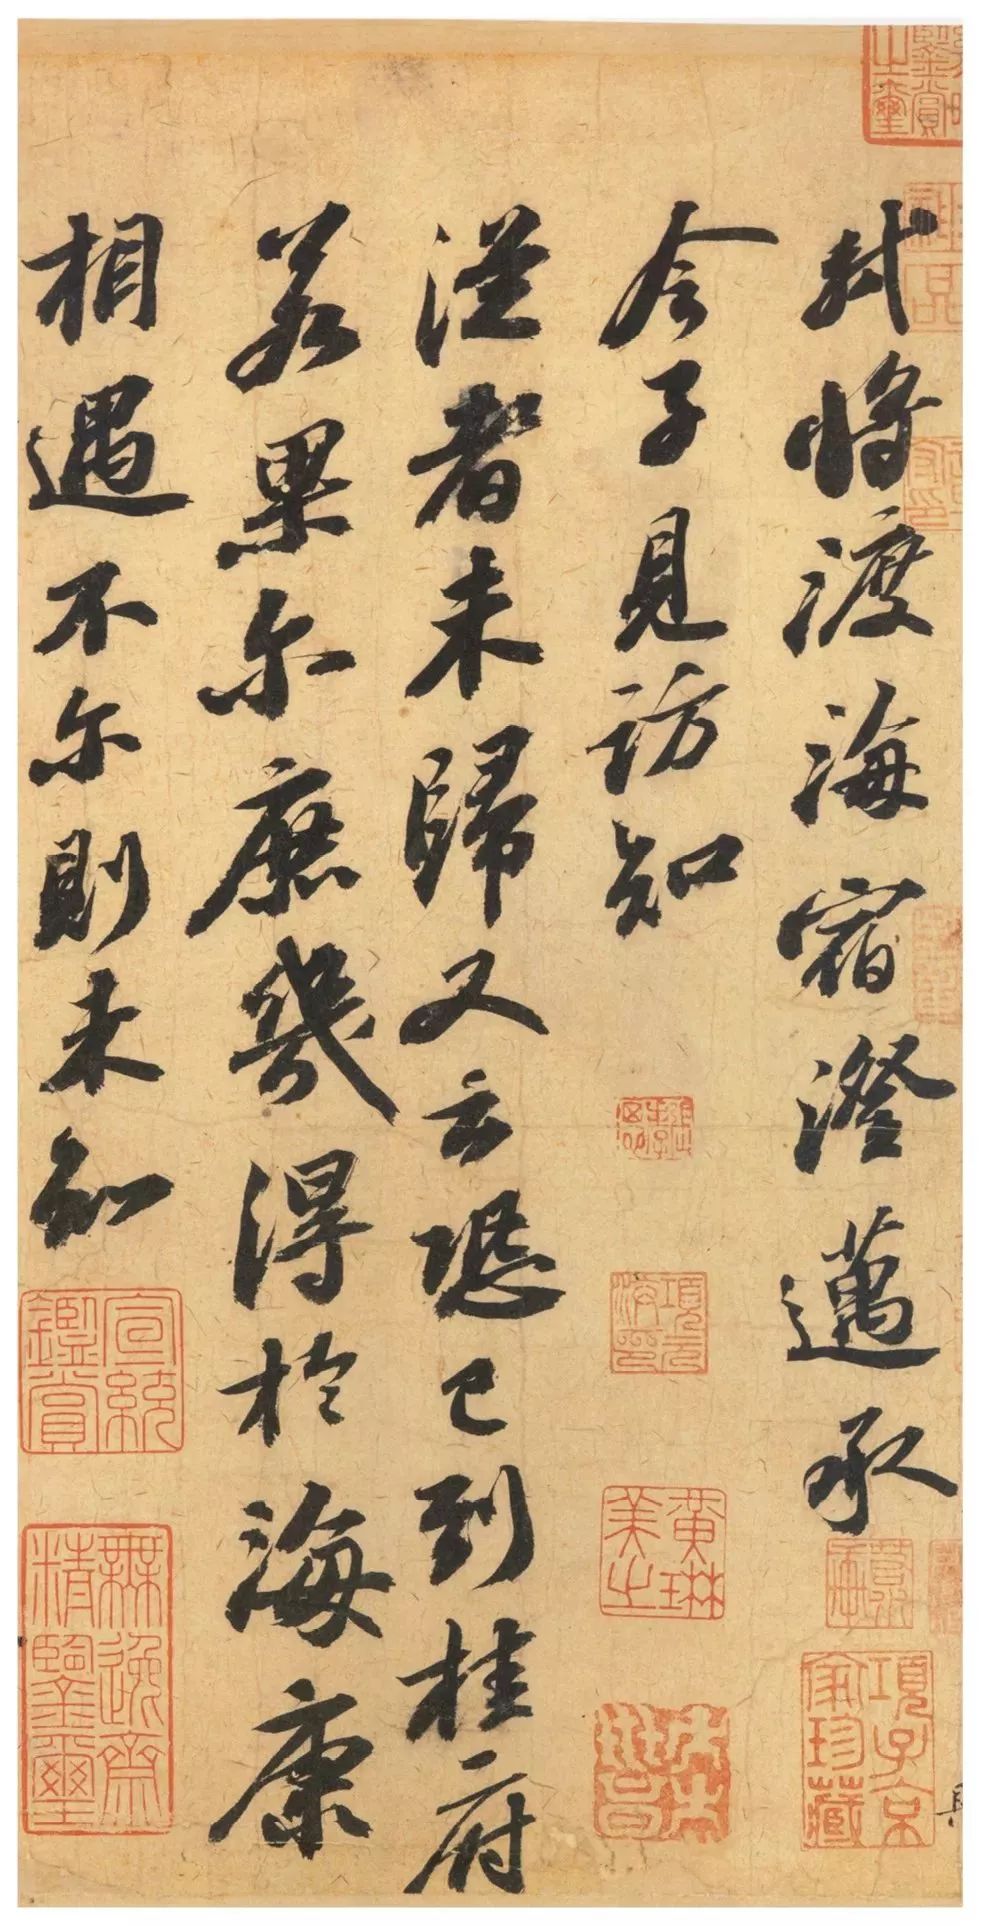 軾將渡海宿澄邁承
令子見訪知
從者未歸又云恐已到桂府
若果尔庶幾得於海康
相遇不尔則未知
宣統
鑑賞
無逸齋
精鑒璽
黃琳
美之
項元
汴印
項子京
家珍藏